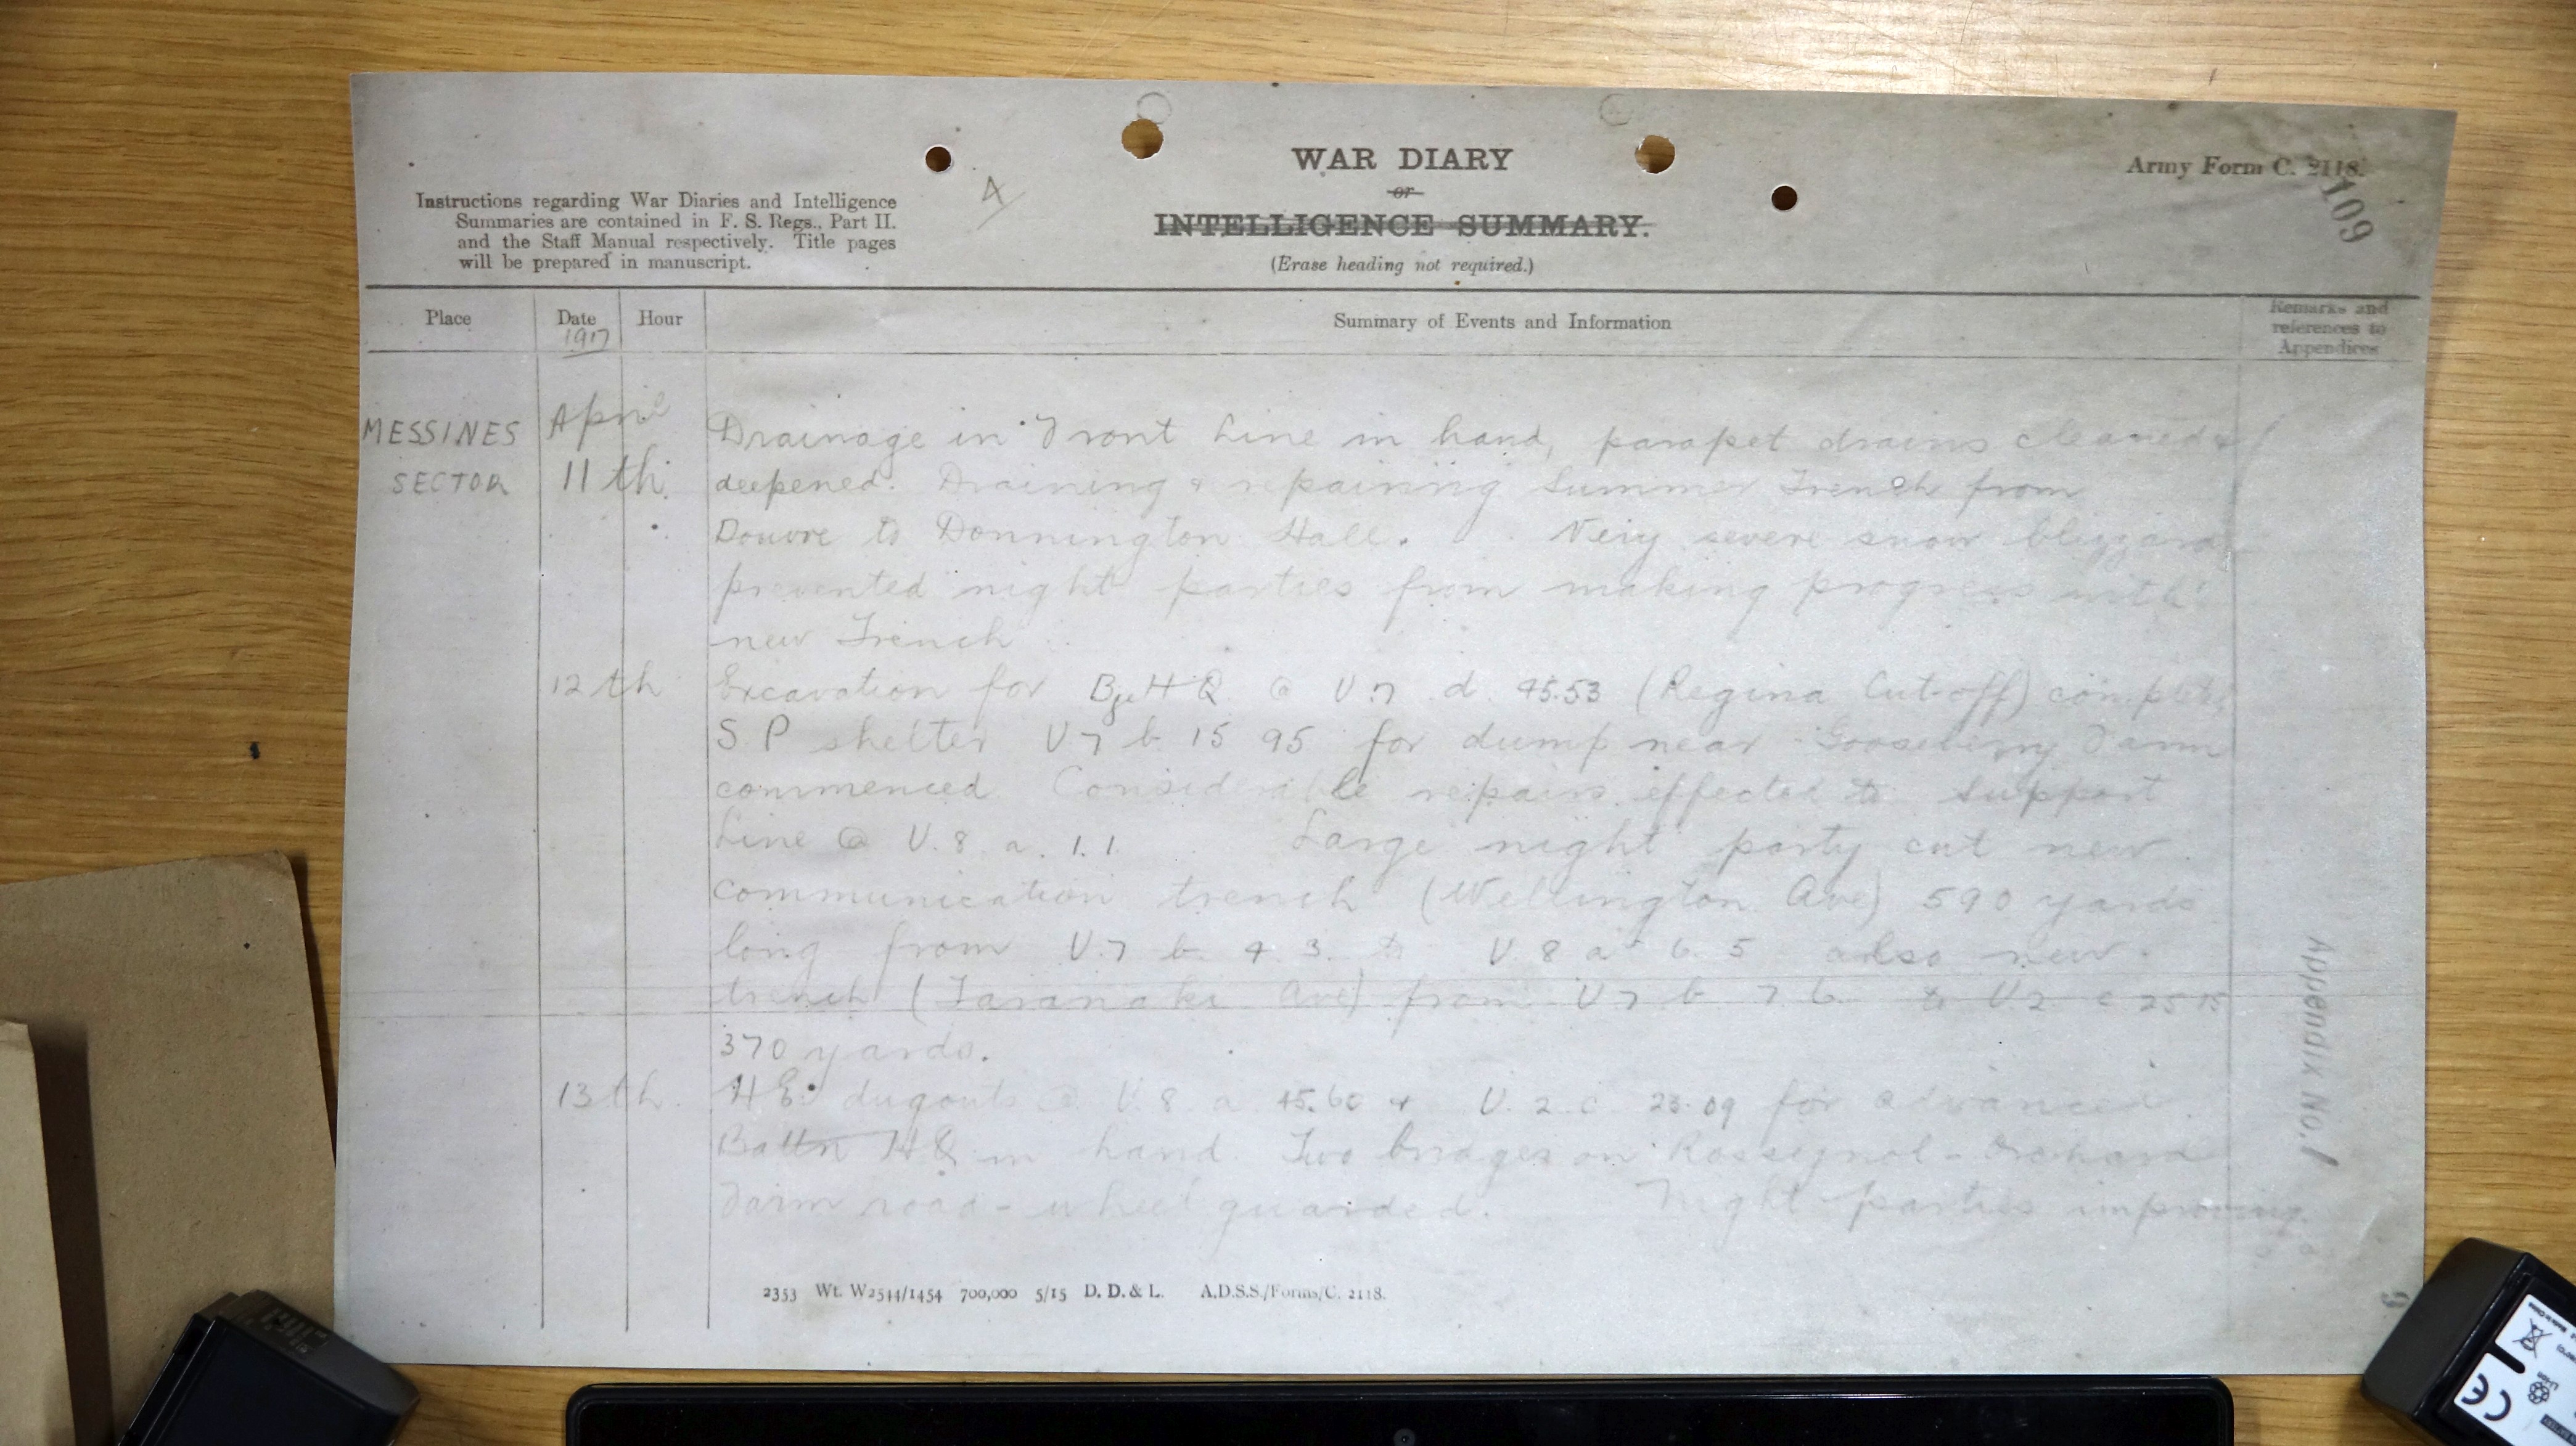 WAR DIARY
or
INTELLIGENCE SUMMARY.
(Erase heading not required.)
Army Form C. 2118.
109
4/
Instructions regarding War Diaries and Intelligence
Summaries are contained in F. S. Regs., Part II.
and the Staff Manual respectively. Title pages
will be prepared in manuscript.
Place Date Hour Summary of Events and Information Remarks and references to Appendices
1917
MESSINES SECTOR
April 11th.
Drainage in Front Line in hand, parapet drains cleaned &
deepened. Draining & repairing Summer Trench from
Douvre to Donnington Hall. Very severe snow blizzard
prevented night parties from making progress with
new Trench
12th Excavation for Bge HQ @ U.7 d. 45.53 (Regina Cut-off)
S.P shelter U7 b 15 95 for dump near Gooseberry Farm
commenced Considerable repairs effected to Support
Line @ U.8. a. 1.1. Large night party cut new
communication trench (Wellington Ave) 590 yards
long from U.7 b 4 3. to U 8 a 6. 5 also new
trench (Taranaki Ave) from U7 b 7 6 to U.2 c 25 15
370 yards.
13th. H.E. dugouts @ U.8. a 45.60 & U. 2. c 23.09 for advanced
Battn HQ in hand. Two bridges on Rossignol - Orchard
Farm road - wheel guarded. Night parties improving
Appendix No. 1
2353 Wt. W2544/1454 700,000 5/15 D. D. & L. A.D.S.S./Forms/C. 2118.